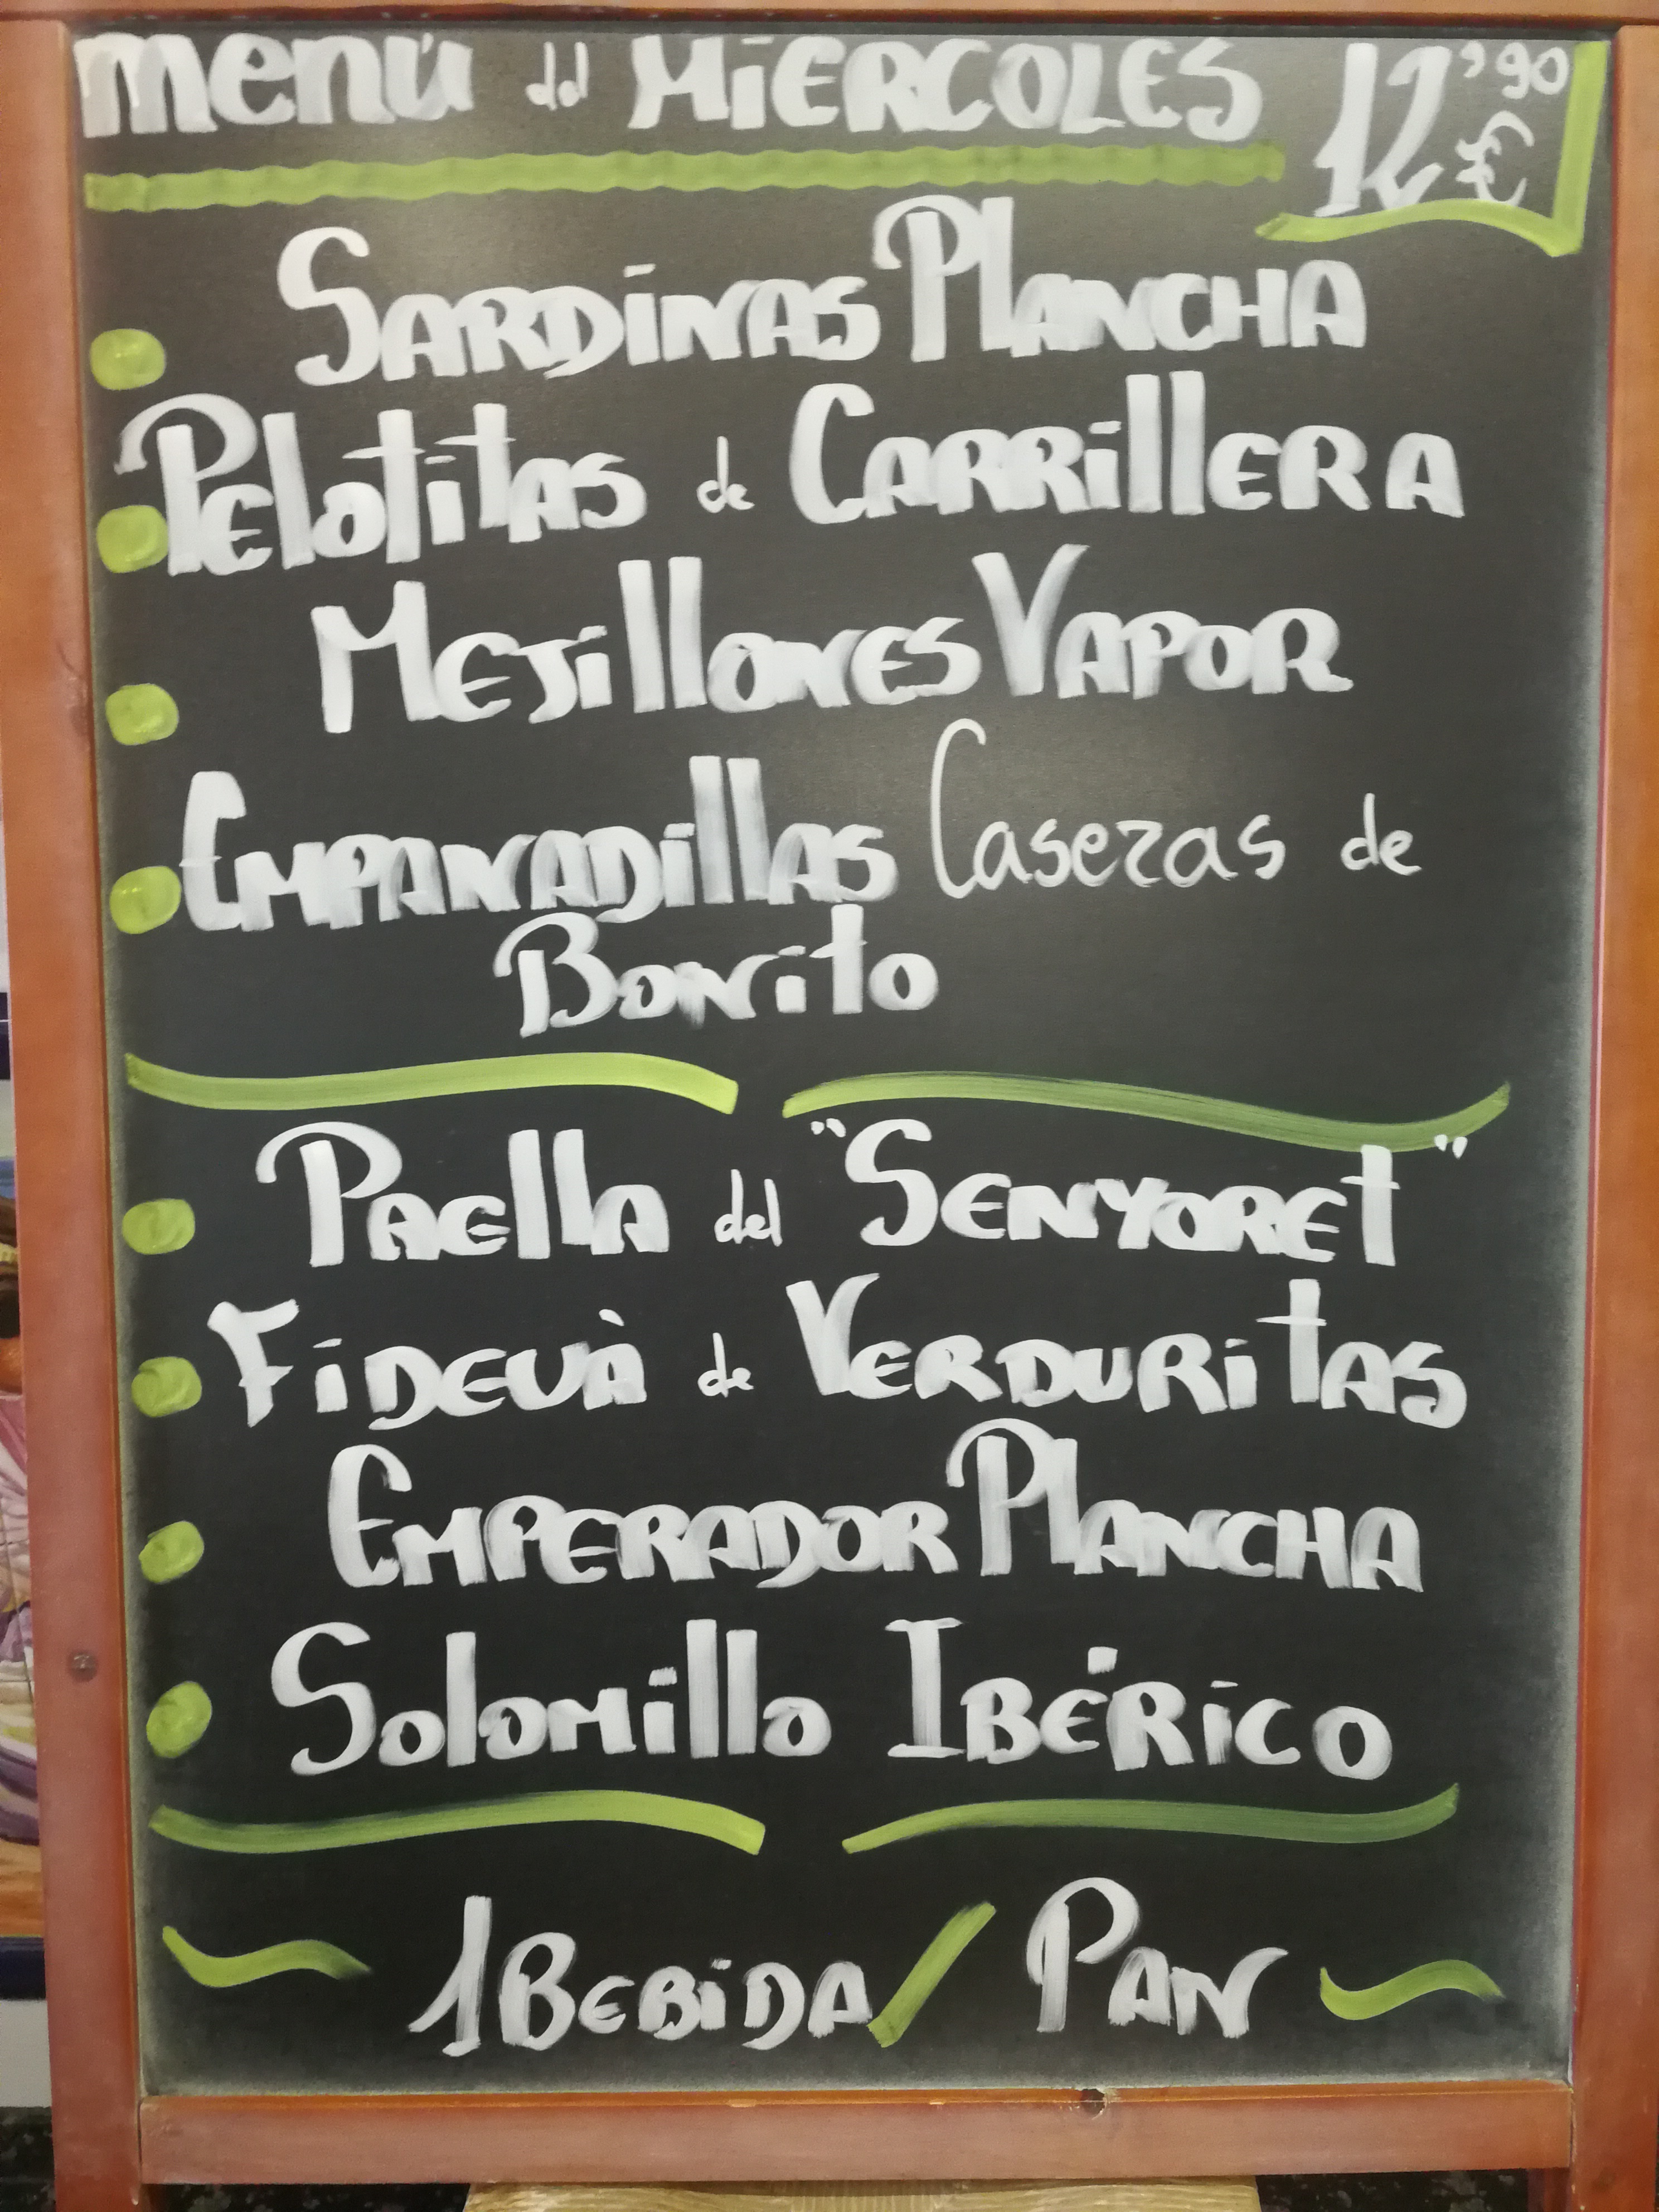 menú del MiERCOLES 12'90 €
SARDINAS PlANCHA
PElotitAS de CARRillERA
MEJillONES VAPOR
EMPANADillAS Caseras de
Bonito
PAElla del "SENYORET"
FiDEUà de VERDURitAS
EMPERADOR PlANCHA
Solomillo IBÉRiCO
1 BEBiDA / PAN